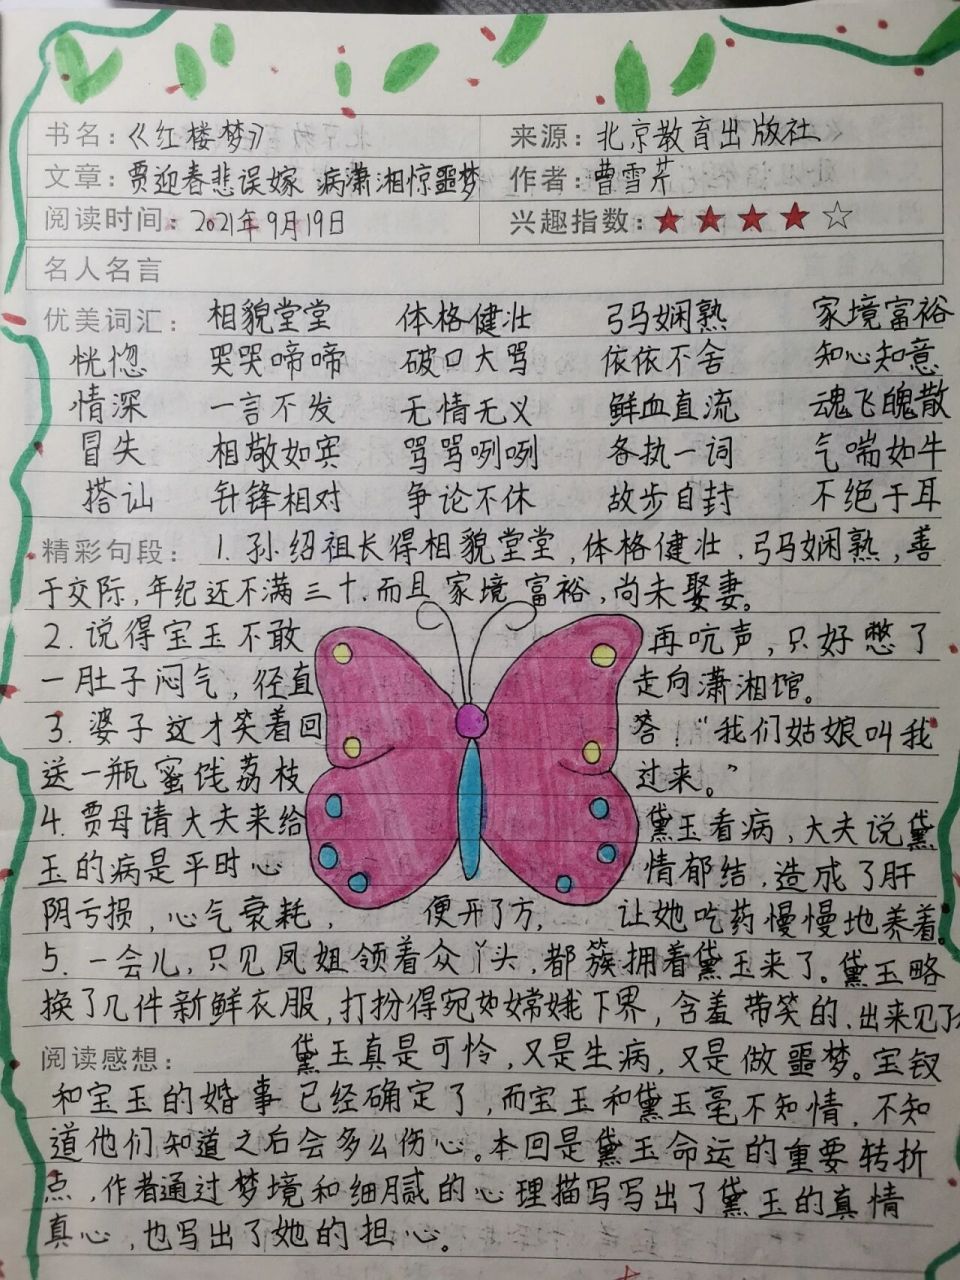 书名:《红楼梦》 来源:北京教育出版社
文章:贾迎春悲误嫁 病潇湘惊噩梦 作者:曹雪芹
阅读时间:2021年9月19日 兴趣指数:★★★★☆
名人名言
优美词汇: 相貌堂堂 体格健壮 弓马娴熟 家境富裕
恍惚 哭哭啼啼 破口大骂 依依不舍 知心知意
情深 一言不发 无情无义 鲜血直流 魂飞魄散
冒失 相敬如宾 骂骂咧咧 各执一词 气喘如牛
搭讪 针锋相对 争论不休 故步自封 不绝于耳
精彩句段: 1.孙绍祖长得相貌堂堂,体格健壮,弓马娴熟,善
于交际,年纪还不满三十,而且家境富裕,尚未娶妻。
2.说得宝玉不敢再吭声,只好憋了
一肚子闷气,径直走向潇湘馆。
3.婆子这才笑着回答:“我们姑娘叫我
送一瓶蜜饯荔枝过来。”
4.贾母请大夫来给黛玉看病,大夫说黛
玉的病是平时心情郁结,造成了肝
阴亏损,心气衰耗,便开了方,让她吃药慢慢地养着。
5.一会儿,只见凤姐领着众丫头,都簇拥着黛玉来了。黛玉略
换了几件新鲜衣服,打扮得宛如嫦娥下界,含羞带笑的,出来见了
阅读感想: 黛玉真是可怜,又是生病,又是做噩梦。宝钗
和宝玉的婚事已经确定了,而宝玉和黛玉毫不知情,不知
道他们知道之后会多么伤心。本回是黛玉命运的重要转折
点,作者通过梦境和细腻的心理描写写出了黛玉的真情
真心,也写出了她的担心。